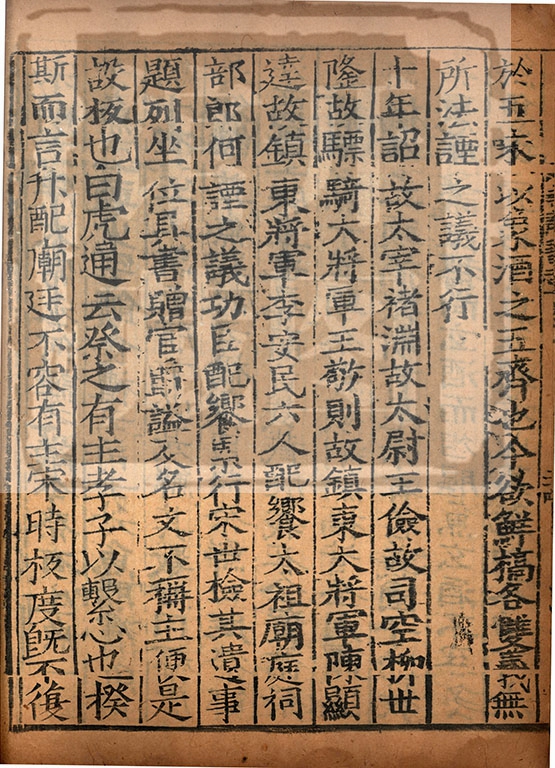 於五味以象酒之五齊也今欲鮮槁各雙義無
所法諲之議不行
十年詔故太宰褚淵故太尉王儉故司空柳世
隆故驃騎大將軍王敬則故鎮東大將軍陳顯
達故鎮東將軍李安民六人配饗太祖廟庭祠
部郎何諲之議功臣配饗累行宋世檢其遺事
題列坐位具書贈官爵謚及名文不稱主便是
設板也白虎通云祭之有主孝子以繫心也揆
斯而言升配廟廷不容有主宋時板度旣不復